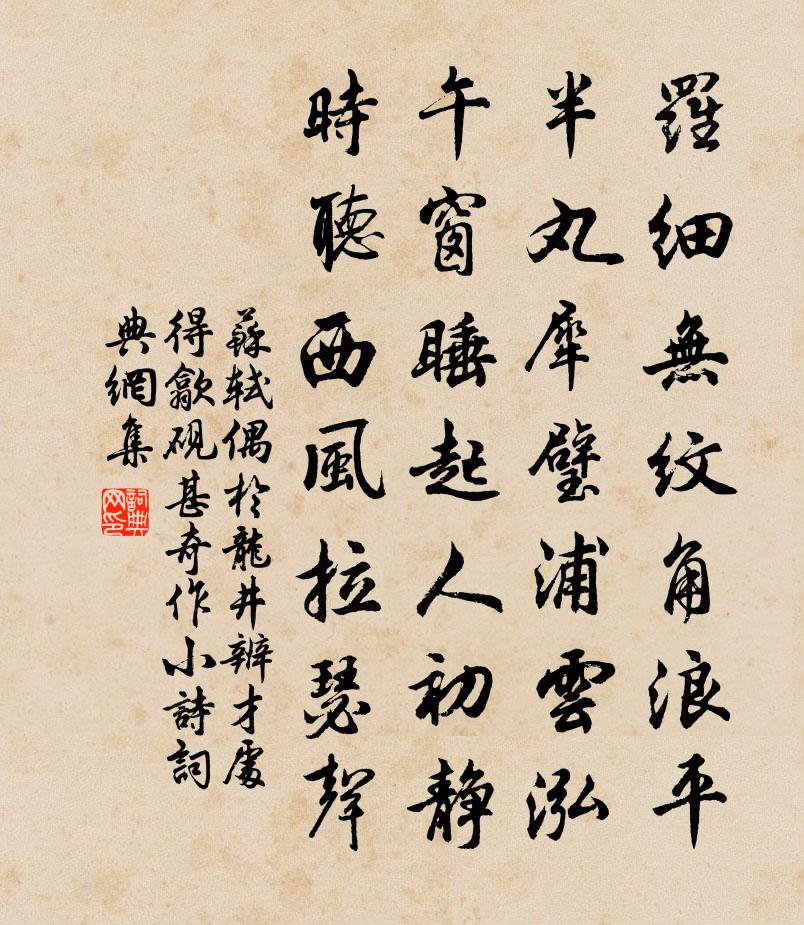 羅細無紋角浪平
半丸犀璧浦雲泓
午窗睡起人初静
時聽西風拉瑟聲
蘇軾偶於龍井辨才處
得歙硯甚奇作小詩詞
典網集
詞典网印